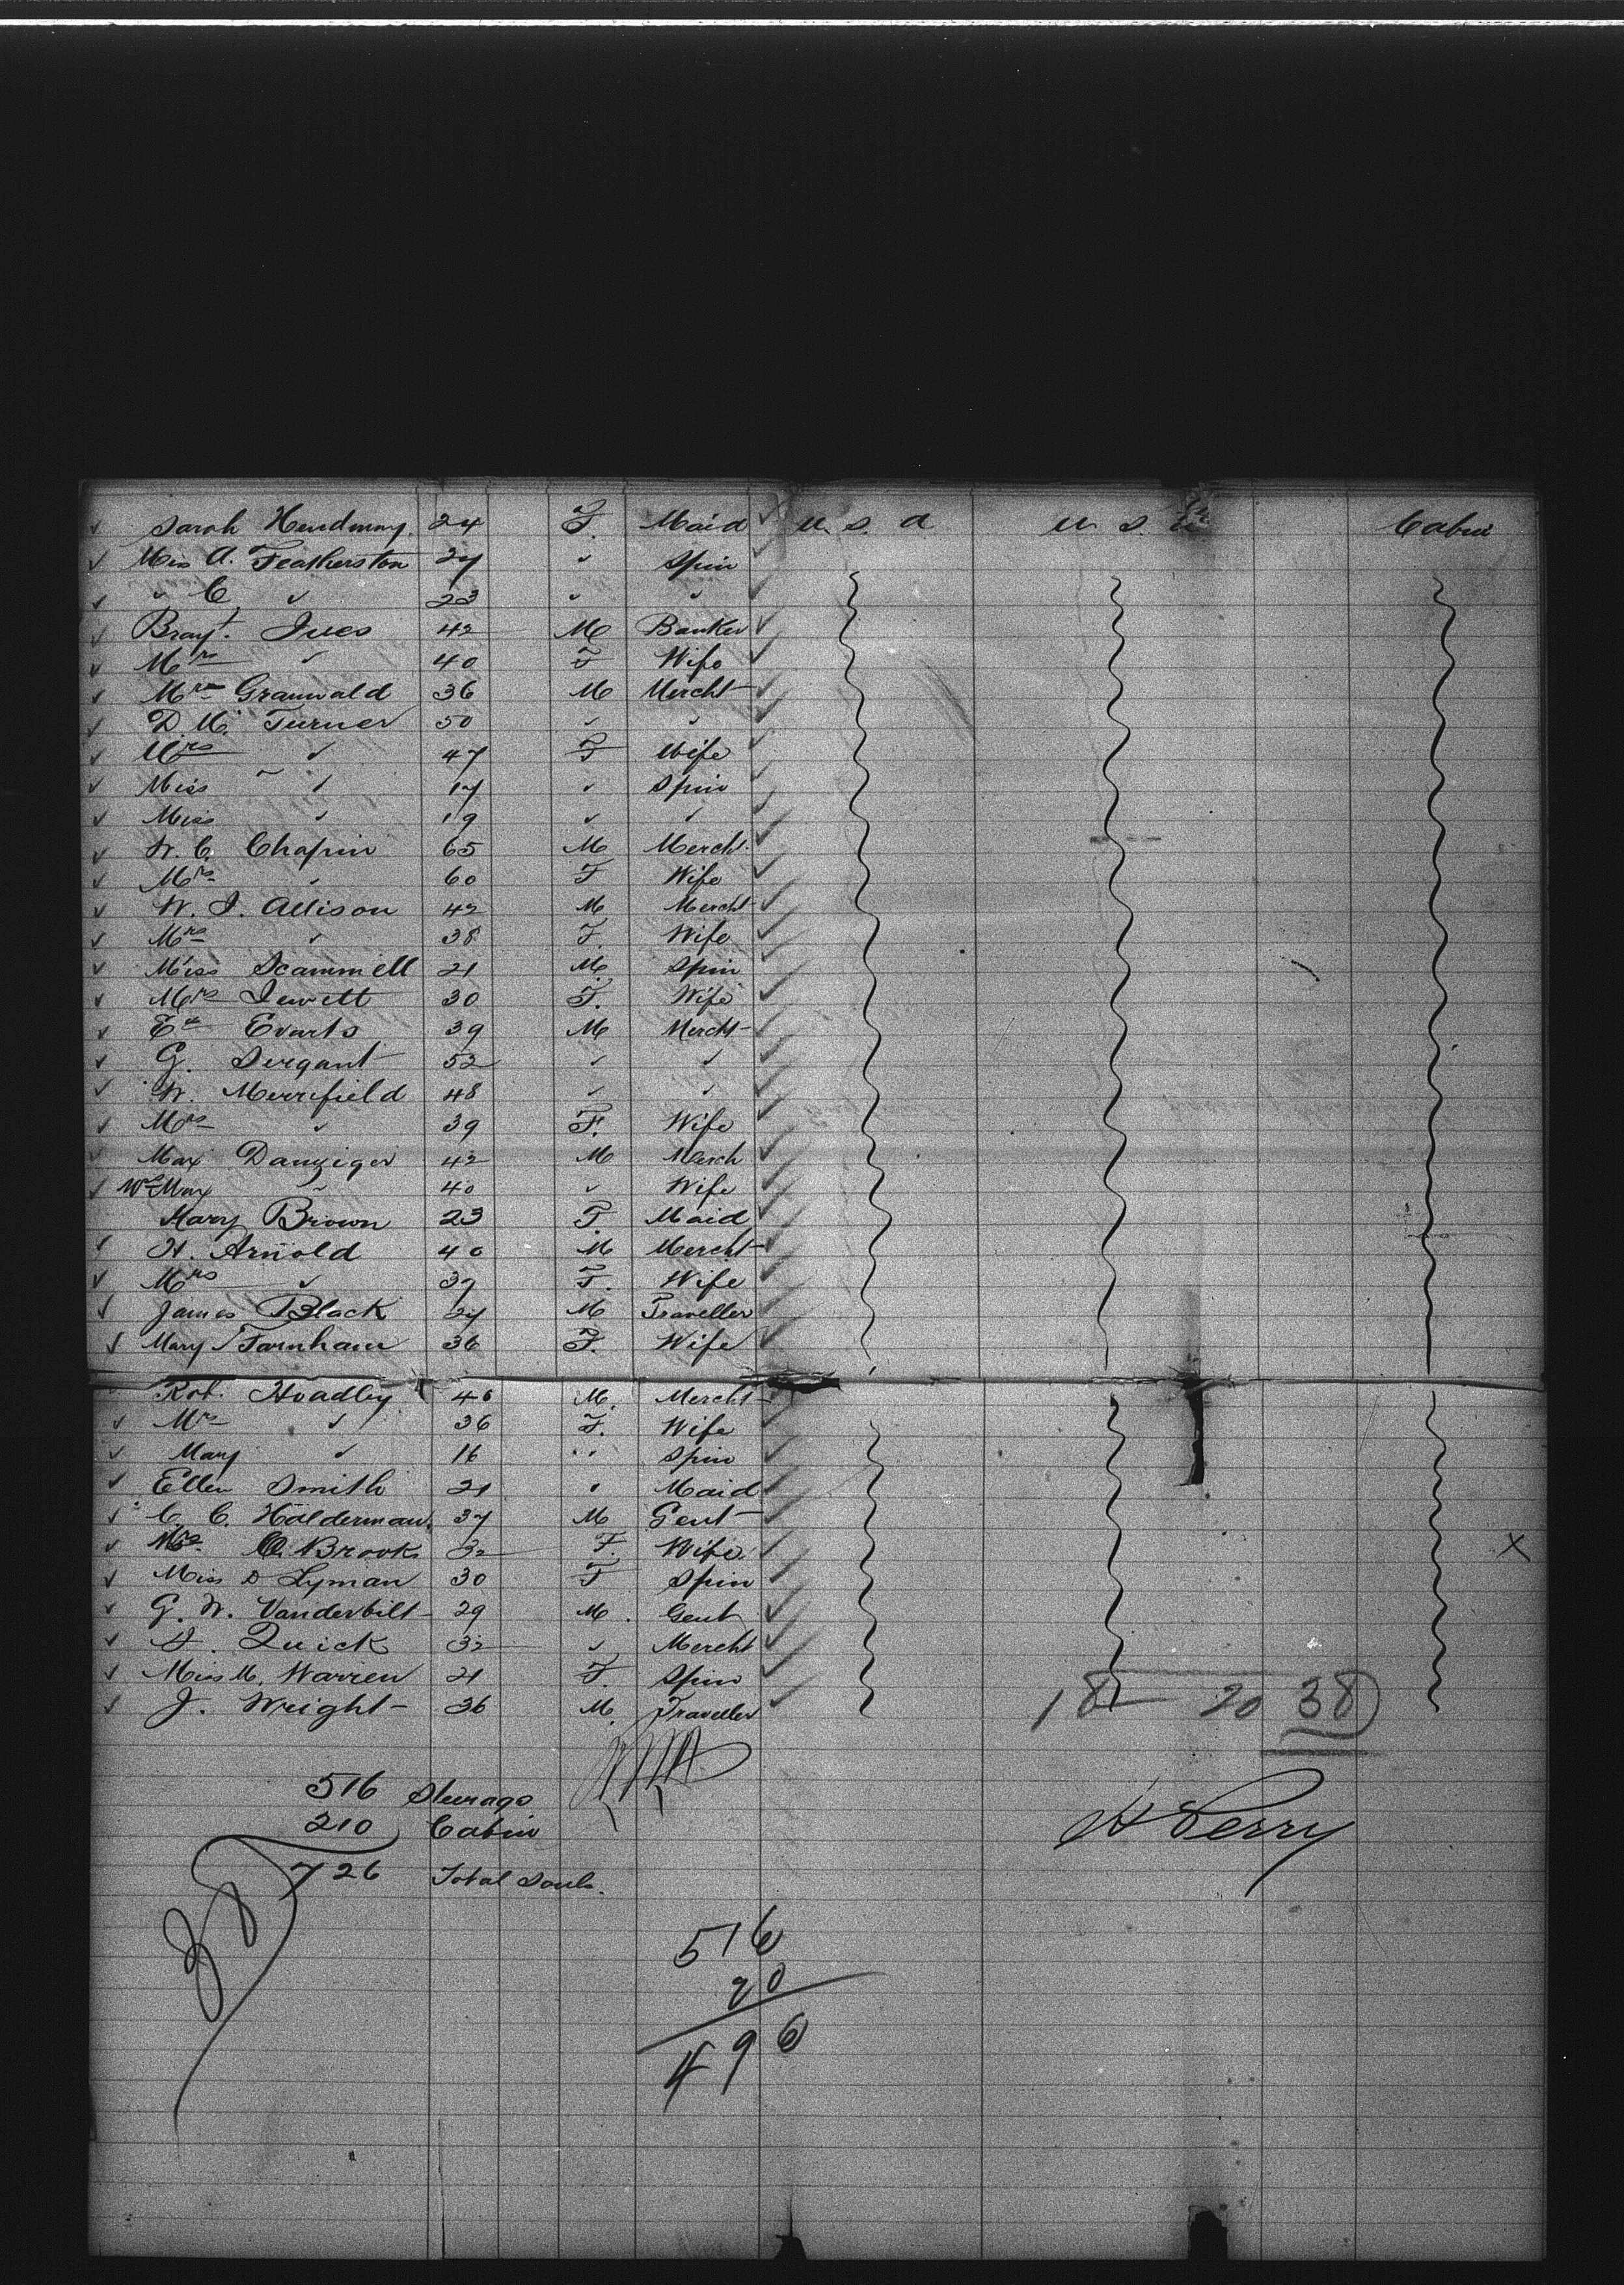 Sarah Hendmny. 24 F. Maid U. S. A U. S. A Cabin
Miss A. Featherston 27 " Spin
" C " 23 " "
Brayt. Ives 42 M Banker
Mrs " 40 F Wife
Mrs Granwald 36 M Mercht
D. M. Turner 50 " "
Mrs " 47 F Wife
Miss " 17 " Spin
Miss " 19 " "
W. C. Chapin 65 M Mercht.
Mrs " 60 F Wife
W. J. Allison 42 M Mercht
Mrs " 38 F. Wife
Miss Scammell 21 M. Spin
Mrs Jewett 30 F. Wife
Ed Evarts 39 M Mercht
G. Sergant 52 " "
W. Merrifield 48 " "
Mrs " 39 F. Wife
Max Danziger 42 M Merch
Mrs Max " 40 " Wife
Mary Brown 23 F. Maid
H. Arnold 40 M Mercht
Mrs " 39 F. Wife
James Black 27 M Traveller
Mary Farnham 36 F. Wife
Rob. Hoadley 46 M. Mercht
Mrs " 36 F. Wife
Mary " 16 " Spin
Ellen Smith 21 " Maid
C. C. Halderman. 37 M Gent
Mrs C. Brooks 32 F. Wife X
Miss D Lyman 30 F Spin
G. W. Vanderbilt 29 M. Gent
Quick 32 " Mercht
Miss M. Warren 21 F. Spin
J. Wright 36 M. Traveller 18 20 38
516 Steerage
210 Cabin H Perry
726 Total Souls.
516
20
496